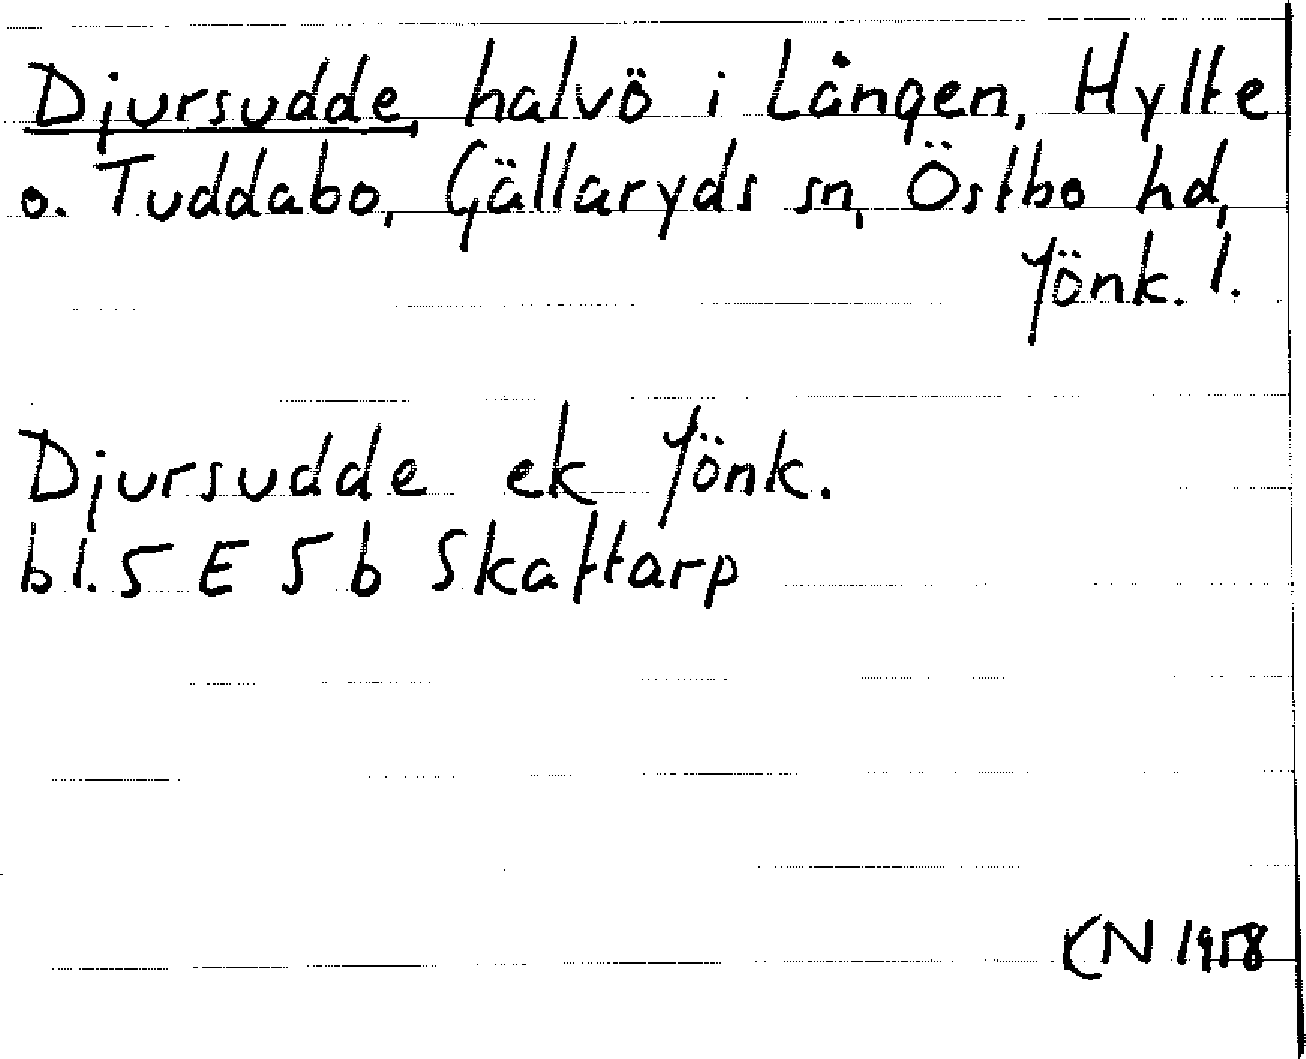 Djursudde, halvö i Lången, Hylte
o. Tuddabo, Gällaryds sn, Östbo hd,
Jönk. l.
Djursudde ek Jönk.
bl. 5 E 5 b Skaftarp
KN 1958